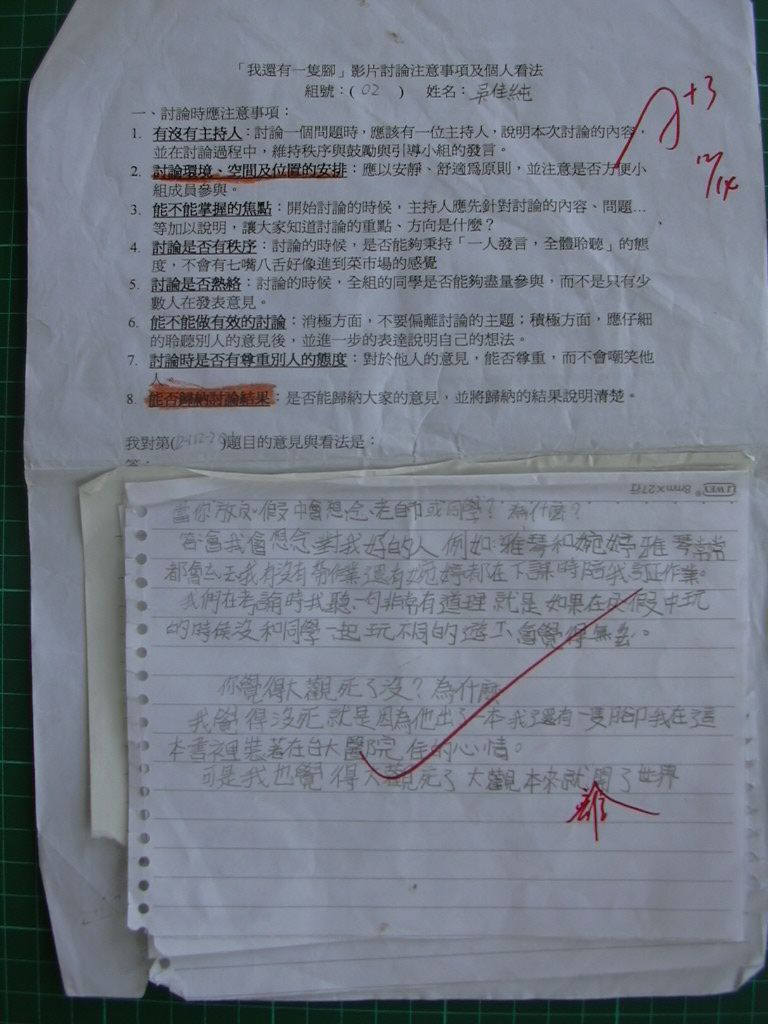 「我還有一隻腳」影片討論注意事項及個人看法
組號：( 02 ) 姓名：吳佳純
一、討論時應注意事項：
1. 有沒有主持人：討論一個問題時，應該有一位主持人，說明本次討論的內容，
並在討論過程中，維持秩序與鼓勵與引導小組的發言。
2. 討論環境、空間及位置的安排：應以安靜、舒適為原則，並注意是否方便小
組成員參與。
3. 能不能掌握的焦點：開始討論的時候，主持人應先針對討論的內容、問題…
等加以說明，讓大家知道討論的重點、方向是什麼？
4. 討論是否有秩序：討論的時候，是否能夠秉持「一人發言，全體聆聽」的態
度，不會有七嘴八舌好像進到菜市場的感覺
5. 討論是否熱絡：討論的時候，全組的同學是否能夠盡量參與，而不是只有少
數人在發表意見。
6. 能不能做有效的討論：消極方面，不要偏離討論的主題；積極方面，應仔細
的聆聽別人的意見後，並進一步的表達說明自己的想法。
7. 討論時是否有尊重別人的態度：對於他人的意見，能否尊重，而不會嘲笑他
人。
8. 能否歸納討論結果：是否能歸納大家的意見，並將歸納的結果說明清楚。
我對第( )題目的意見與看法是：
答：
+3
12/14
8mm×27行
當你放假中會想念老師或同學？為什麼？
答:會我會想念對我好的人例如:雅琴和婉婷雅琴常常
都會 我有沒有帶作業還有婉婷都在下課時陪我訂正作業。
我們在討論時我聽一句非常有道理就是如果在 假中玩
的時候沒和同學一起玩不同的遊 會覺得無 。
你覺得大觀死了沒？為什麼
我覺得沒死就是因為他出了一本我還有一隻腳我在這
本書裡裝著在台大醫院 的心情。
可是我也覺得大觀死了大觀本來就 開了世界
離